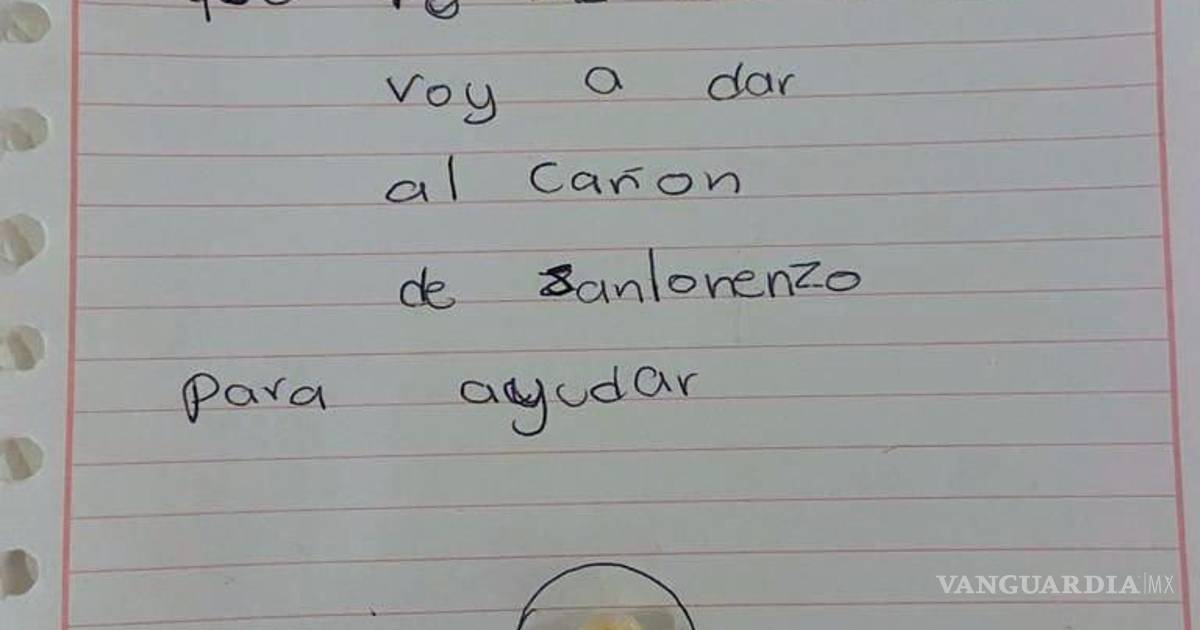 voy a dar
al Cañon
de sanlorenzo
para ayudar
VANGUARDIA|MX